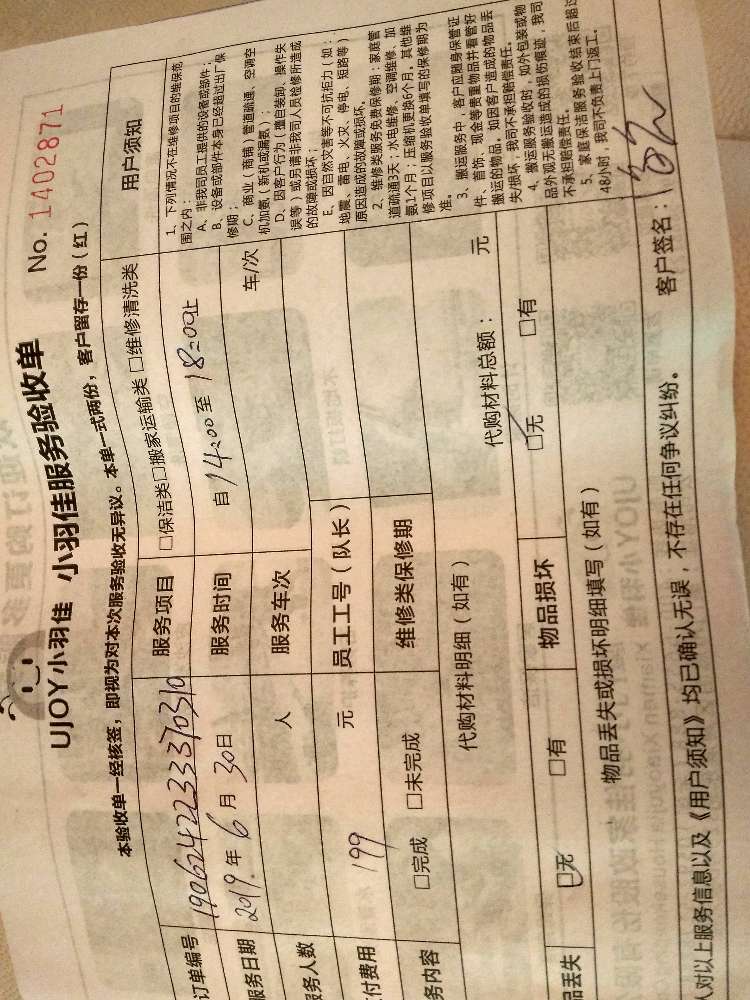 UJOY小羽佳 小羽佳服务验收单 No. 1402871
本验收单一经核签，即视为对本次服务验收无异议。本单一式两份，客户留存一份（红）
订单编号 1906242233370310 服务项目 □保洁类□搬家运输类 □维修清洗类
服务日期 2019年 6 月 30日 服务时间 自 14:00 至 18:00止
服务人数 人 服务车次 车/次
付费用 199 元 员工工号（队长）
务内容 □完成 □未完成 维修类保修期
代购材料明细（如有） 代购材料总额： 元
品丢失 □无 □有 物品损坏 □无 □有
物品丢失或损坏明细填写（如有）
用户须知
1、下列情况不在维修项目的维保范
围之内：
A、非我司员工提供的设备或部件；
B、设备或部件本身已经超过出厂保
修期；
C、商业（商铺）管道疏通、空调空
机加氨（新机或漏氨）；
D、因客户行为（擅自装卸、操作失
误等）或另请非我司人员检修所造成
的故障或损坏；
E、因自然灾害等不可抗拒力（如：
地震、雷电、火灾、停电、短路等）
原因造成的故障或损坏。
2、维修类服务免费保修期：家庭管
道疏通3天；水电维修、空调维修、加
氨1个月；压缩机更换6个月，其他维
修项目以服务验收单填写的保修期为
准。
3、搬运服务中，客户应随身保管证
件、首饰、现金等贵重物品并看管好
搬运的物品，如因客户造成的物品丢
失/损坏，我司不承担赔偿责任。
4、搬运服务验收时，如外包装或物
品外观无搬运造成的损伤痕迹，我司
不承担赔偿责任。
5、家庭保洁服务验收结束后超过
48小时，我司不负责上门返工。
人对以上服务信息以及《用户须知》均已确认无误，不存在任何争议纠纷。 客户签名：